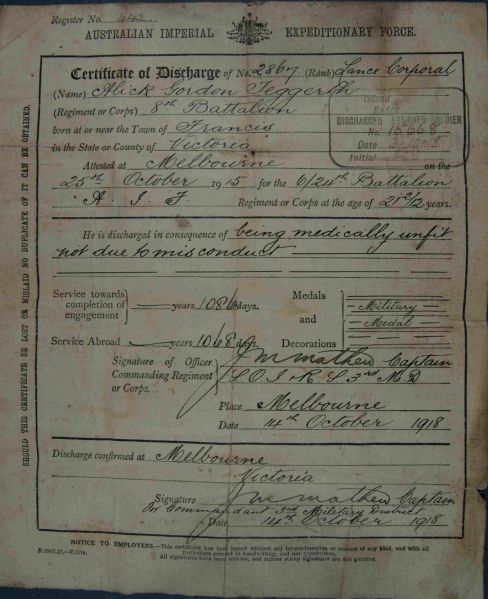 Register No.
AUSTRALIAN IMPERIAL EXPEDITIONARY FORCE.
Certificate of Discharge of No. 2867 (Rank) Lance Corporal
(Name) Alick Gordon Teggerth
(Regiment or Corps) 8th Battalion
born at or near the Town of Francis
in the State or County of Victoria
Attested at Melbourne on the
25th October 1915 for the 6/24th Battalion
A. I. F. Regiment or Corps at the age of 21 2/12 years.
Issued
Badge
DISCHARGED RETURNED SOLDIER
No. 15668
Date
Initial
He is discharged in consequence of being medically unfit
not due to misconduct
Service towards completion of engagement years 1086 days.
Service Abroad years 1068 days.
Medals and Decorations
Military
Medal
Signature of Officer Commanding Regiment or Corps.
J M Mathew Captain
S O I & R S 3rd M.D
Place Melbourne
Date 14th October 1918
Discharge confirmed at Melbourne
Victoria
Signature J M Mathew Captain
for Commandant 3rd Military District
Date 14th October 1918
NOTICE TO EMPLOYERS.—This certificate has been issued without any interlineation or erasure of any kind, and with all
particulars entered in handwriting, and not typewritten.
All signatures have been written, and rubber stamp signatures are not genuine.
SHOULD THIS CERTIFICATE BE LOST OR MISLAID NO DUPLICATE OF IT CAN BE OBTAINED.